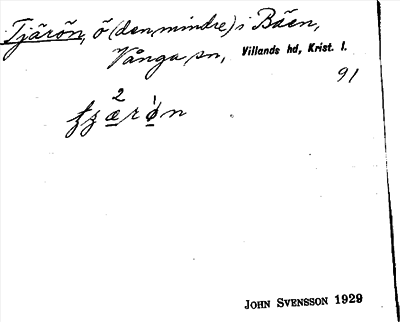 Tjärön, ö (den mindre) i Bäen,
Vånga sn, Villands hd, Krist. l.
91
John Svensson 1929